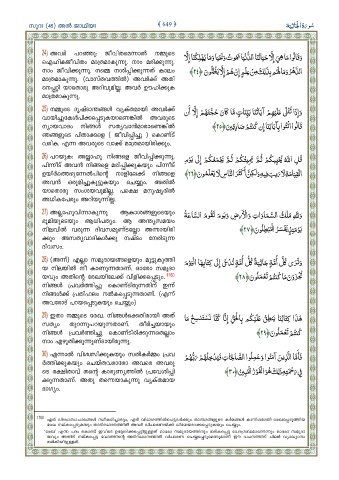 സൂറ: (45) അൽ ജാഥിയഃ
﴾ 649 ﴿
سورة الجاثية
24) അവർ പറഞ്ഞു: ജീവിതമെന്നാൽ നമ്മുടെ
ഐഹികജീവിതം മാത്രമാകുന്നു. നാം മരിക്കുന്നു.
നാം ജീവിക്കുന്നു. നമ്മെ നശിപ്പിക്കുന്നത് കാലം
മാത്രമാകുന്നു. (വാസ്തവത്തിൽ) അവർക്ക് അതി
നെപ്പറ്റി യാതൊരു അറിവുമില്ല. അവർ ഊഹിക്കുക
മാത്രമാകുന്നു.
وَقَالُوا مَا هِيَ إِلَّا حَيَاتُنَا الدُّنْيَا نَمُوتُ وَنَحْيَا وَمَا يُهْلِكُنَا إِلَّا
الدَّهْرُ وَمَا لَهُم بِذَٰلِكَ مِنْ عِلْمٍ إِنْ هُمْ إِلَّا يَظُنُّونَ ﴿٢٤﴾
25) നമ്മുടെ ദൃഷ്ടാന്തങ്ങൾ വ്യക്തമായി അവർക്ക്
വായിച്ചുകേൾപിക്കപ്പെടുകയാണെങ്കിൽ അവരുടെ
ന്യായവാദം നിങ്ങൾ സത്യവാന്മാരാണെങ്കിൽ
ഞങ്ങളുടെ പിതാക്കളെ ( ജീവിപ്പിച്ചു ) കൊണ്ട്
വരിക. എന്ന അവരുടെ വാക്ക് മാത്രമായിരിക്കും.
وَإِذَا تُتْلَىٰ عَلَيْهِمْ آيَاتُنَا بَيِّنَاتٍ مَّا كَانَ حُجَّتَهُمْ إِلَّا أَن
قَالُوا ائْتُوا بِآبَائِنَا إِن كُنتُمْ صَادِقِينَ ﴿٢٥﴾
26) പറയുക: അല്ലാഹു നിങ്ങളെ ജീവിപ്പിക്കുന്നു.
പിന്നീട് അവൻ നിങ്ങളെ മരിപ്പിക്കുകയും പിന്നീട്
ഉയിർത്തെഴുന്നേൽപിന്റെ നാളിലേക്ക് നിങ്ങളെ
അവൻ ഒരുമിച്ചുകൂട്ടുകയും ചെയ്യും. അതിൽ
യാതൊരു സംശയവുമില്ല. പക്ഷെ മനുഷ്യരിൽ
അധികപേരും അറിയുന്നില്ല.
قُلِ اللَّهُ يُحْيِيكُمْ ثُمَّ يُمِيتُكُمْ ثُمَّ يَجْمَعُكُمْ إِلَىٰ يَوْمِ
الْقِيَامَةِ لَا رَيْبَ فِيهِ وَلَٰكِنَّ أَكْثَرَ النَّاسِ لَا يَعْلَمُونَ ﴿٢٦﴾
27) അല്ലാഹുവിനാകുന്നു ആകാശങ്ങളുടെയും
ഭൂമിയുടെയും ആധിപത്യം. ആ അന്ത്യസമയം
നിലവിൽ വരുന്ന ദിവസമുണ്ടല്ലോ അന്നായിരി
ക്കും അസത്യവാദികൾക്കു നഷ്ടം നേരിടുന്ന
ദിവസം.
وَلِلَّهِ مُلْكُ السَّمَاوَاتِ وَالْأَرْضِ وَيَوْمَ تَقُومُ السَّاعَةُ
يَوْمَئِذٍ يَخْسَرُ الْمُبْطِلُونَ ﴿٢٧﴾
28) (അന്ന്) എല്ലാ സമുദായങ്ങളെയും മുട്ടുകുത്തി
യ നിലയിൽ നീ കാണുന്നതാണ്. ഓരോ സമുദാ
യവും അതിന്റെ രേഖയിലേക്ക് വിളിക്കപ്പെടും.
നിങ്ങൾ പ്രവർത്തിച്ചു കൊണ്ടിരുന്നതിന് ഇന്ന്
നിങ്ങൾക്ക് പ്രതിഫലം നൽകപ്പെടുന്നതാണ്. (എന്ന്
അവരോട് പറയപ്പെടുകയും ചെയ്യും.)
وَتَرَىٰ كُلَّ أُمَّةٍ جَاثِيَةً كُلُّ أُمَّةٍ تُدْعَىٰ إِلَىٰ كِتَابِهَا الْيَوْمَ
تُجْزَوْنَ مَا كُنتُمْ تَعْمَلُونَ ﴿٢٨﴾
29) ഇതാ നമ്മുടെ രേഖ. നിങ്ങൾക്കെതിരായി അത്
സത്യം തുറന്നുപറയുന്നതാണ്. തീർച്ചയായും
നിങ്ങൾ പ്രവർത്തിച്ചു കൊണ്ടിരിക്കുന്നതെല്ലാം
നാം എഴുതിക്കുന്നുണ്ടായിരുന്നു.
هَٰذَا كِتَابُنَا يَنطِقُ عَلَيْكُم بِالْحَقِّ إِنَّا كُنَّا نَسْتَنسِخُ مَا
كُنتُمْ تَعْمَلُونَ ﴿٢٩﴾
30) എന്നാൽ വിശ്വസിക്കുകയും സൽകർമ്മം പ്രവ
ർത്തിക്കുകയും ചെയ്തവരാരോ അവരെ അവരു
ടെ രക്ഷിതാവ് തന്റെ കാരുണ്യത്തിൽ പ്രവേശിപ്പി
ക്കുന്നതാണ്. അതു തന്നെയാകുന്നു വ്യക്തമായ
ഭാഗ്യം.
فَأَمَّا الَّذِينَ آمَنُوا وَعَمِلُوا الصَّالِحَاتِ فَيُدْخِلُهُمْ رَبُّهُمْ
فِي رَحْمَتِهِ ذَٰلِكَ هُوَ الْفَوْزُ الْمُبِينُ ﴿٣٠﴾